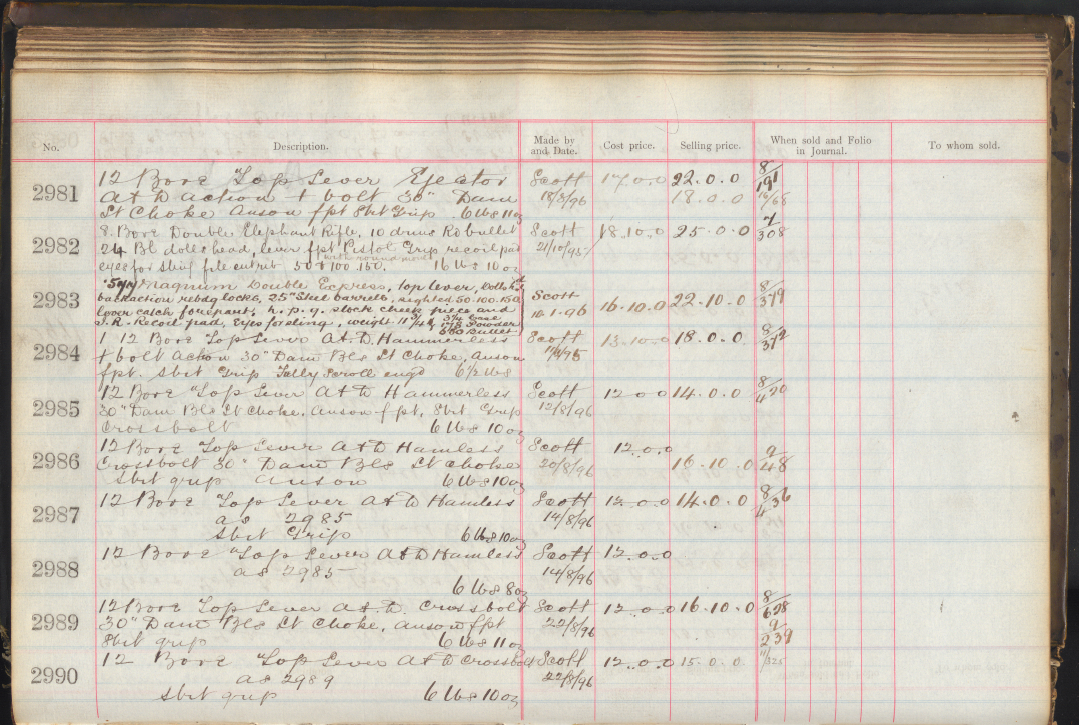 No. Description. Made by and Date. Cost price. Selling price. When sold and Folio in Journal. To whom sold.
2981 12 Bore Top Lever Ejector Scott 17.0.0 22.0.0 8/191
A & D action + bolt 30" Dam 18/8/96 18.0.0 10/68
Lt Choke Anson fpt Sbit Grip 6 lbs 11 oz
2982 8 Bore Double Elephant Rifle, 10 drms Rd bullet Scott 18.10.0 25.0.0 7/308
24 Bl dolls head, lever fpt Pistol Grip recoil pad 21/10/95
with round
eyes for sling file cut rib 50 & 100.150. 16 lbs 10 oz
2983 .577 Magnum Double Express, top lever, Dolls hd Scott 16.10.0 22.10.0 8/379
backaction rebdg locks, 25" Steel barrels, sighted 50.100.150 10.1.96
lever catch forepart, h.p.g. stock cheek piece and
I.R. Recoil pad, Eyes for sling, weight 11 3/4 lbs, 3 3/4 case
178 Powder
560 Bullet
2984 1 12 Bore Top Lever A & D. Hammerless Scott 13.10.0 18.0.0 8/372
+ bolt Action 30" Dam Bls Lt Choke, Anson
fpt. Sbit Grip Fully Scroll engd 6 1/2 lbs
2985 12 Bore Top Lever A & D Hammerless Scott 12.0.0 14.0.0 8/420
30" Dam Bls Lt Choke, Anson fpt, Sbit Grip 12/8/96
Crossbolt 6 lbs 10 oz
2986 12 Bore Top Lever A & D Hamless Scott 12.0.0 16.10.0 9/48
Crossbolt 30" Dam Bls Lt choke 20/8/96
Sbit grip Anson 6 lbs 10 oz
2987 12 Bore Top Lever A & D Hamless Scott 12.0.0 14.0.0 8/436
as 2985 14/8/96
Sbit Grip 6 lbs 10 oz
2988 12 Bore Top Lever A & D Hamless Scott 12.0.0
as 2985 14/8/96
6 lbs 8 oz
2989 12 Bore Top Lever A & D. Crossbolt Scott 12.0.0 16.10.0 8/628
30" Dam Bls Lt Choke, Anson fpt 22/8/96 9/239
Sbit grip 6 lbs 11 oz
2990 12 Bore Top Lever A & D Crossbolt Scott 12.0.0 15.0.0 11/325
as 2989 22/8/96
Sbit grip 6 lbs 10 oz